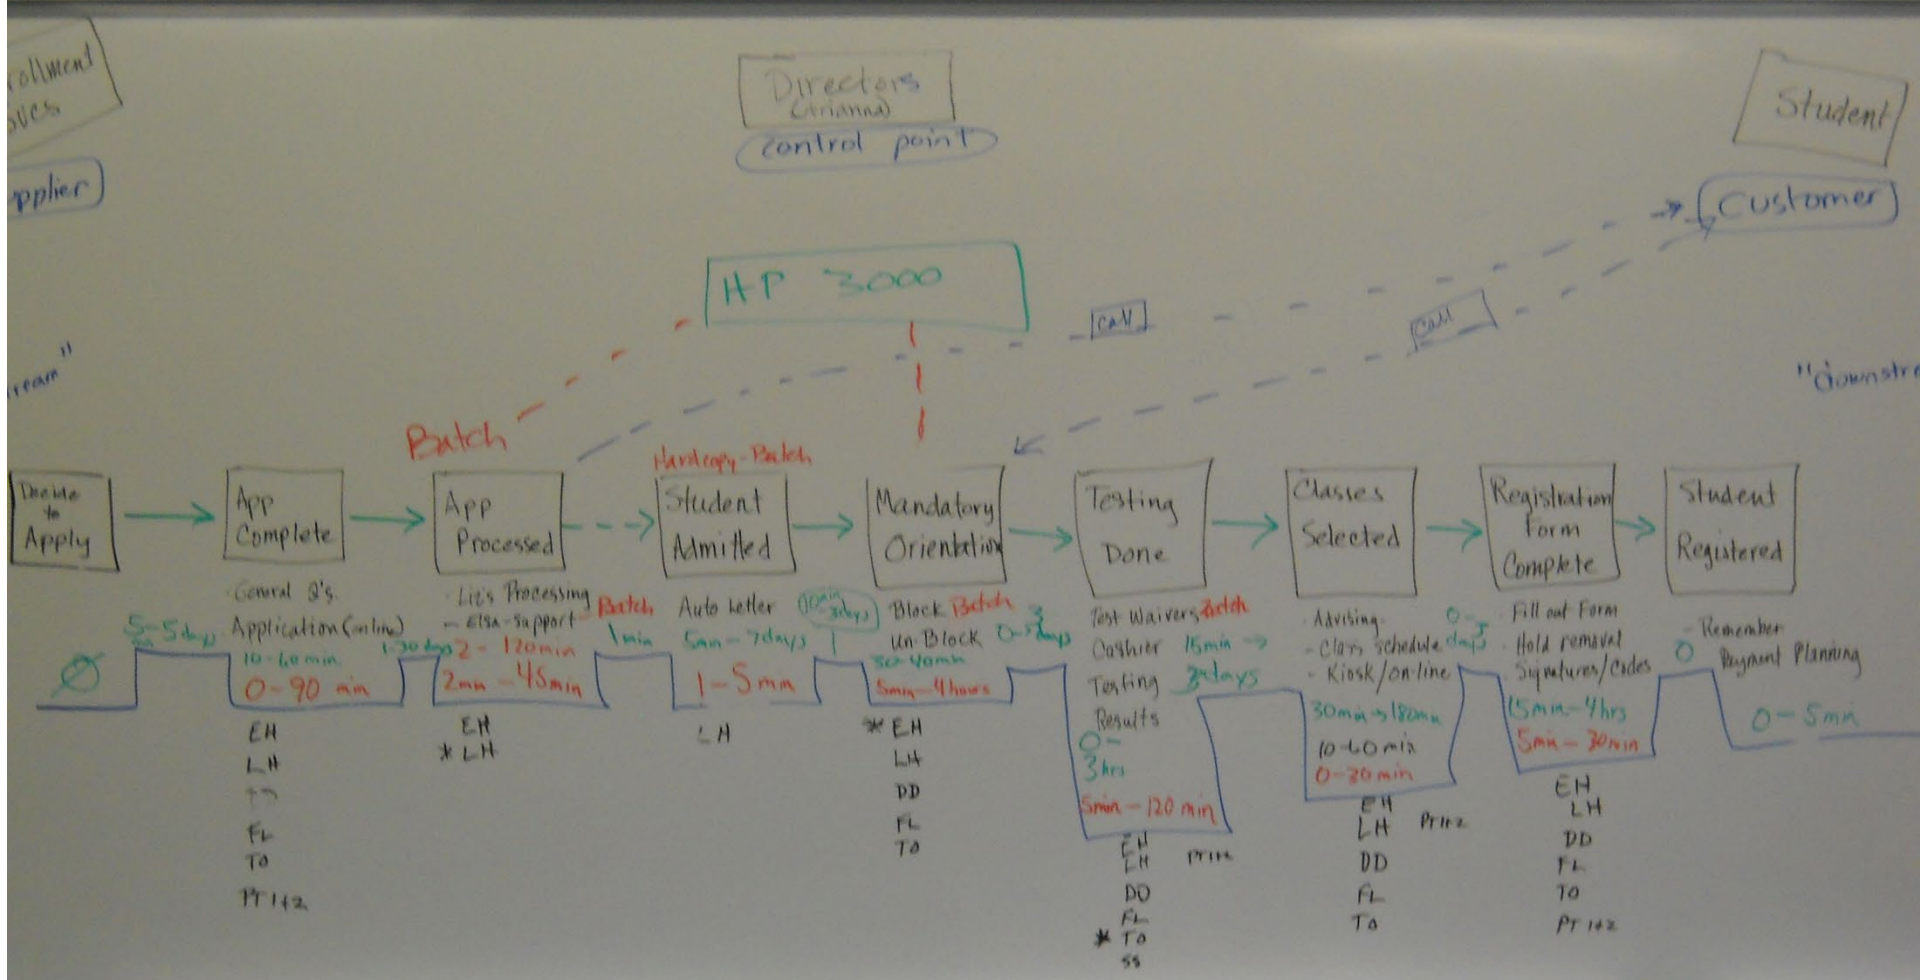 rollment
Directors
(Arianna)
control point
Student
Customer
pplier
HP 3000
call
call
ream"
"downstre
Batch
Hardcopy-Batch
Decide
to
Apply
App
Complete
App
Processed
Student
Admitted
Mandatory
Orientation
Testing
Done
Classes
Selected
Registration
Form
Complete
Student
Registered
5 - 5 days
Ø
· General Q's
Application (online)
10-60 min
0-90 min
EH
LH
FL
TO
PT 1+2
1-30 days
· Liz's Processing
- Elsa-Support
2 - 120min
2min - 45min
EH
* LH
Batch
1min
Auto Letter
5min - 7days
1-5min
LH
10min
3days
1
Block Batch
un-Block
30-40min
5min-4hours
* EH
LH
DD
FL
TO
0-3 days
Test Waivers Batch
Cashier 15min →
Testing 3days
Results
0 -
3hrs
5min - 120 min
EH
LH PT1+2
DD
FL
* TO
SS
· Advising
- Class schedule
- Kiosk/on-line
30min → 180min
10-60min
0-30min
EH
LH PT1+2
DD
FL
TO
0-
days
· Fill out Form
· Hold removal
· Signatures/Codes
15min-4hrs
5min - 30min
EH
LH
DD
FL
TO
PT 1+2
0
- Remember
Payment Planning
0 - 5min